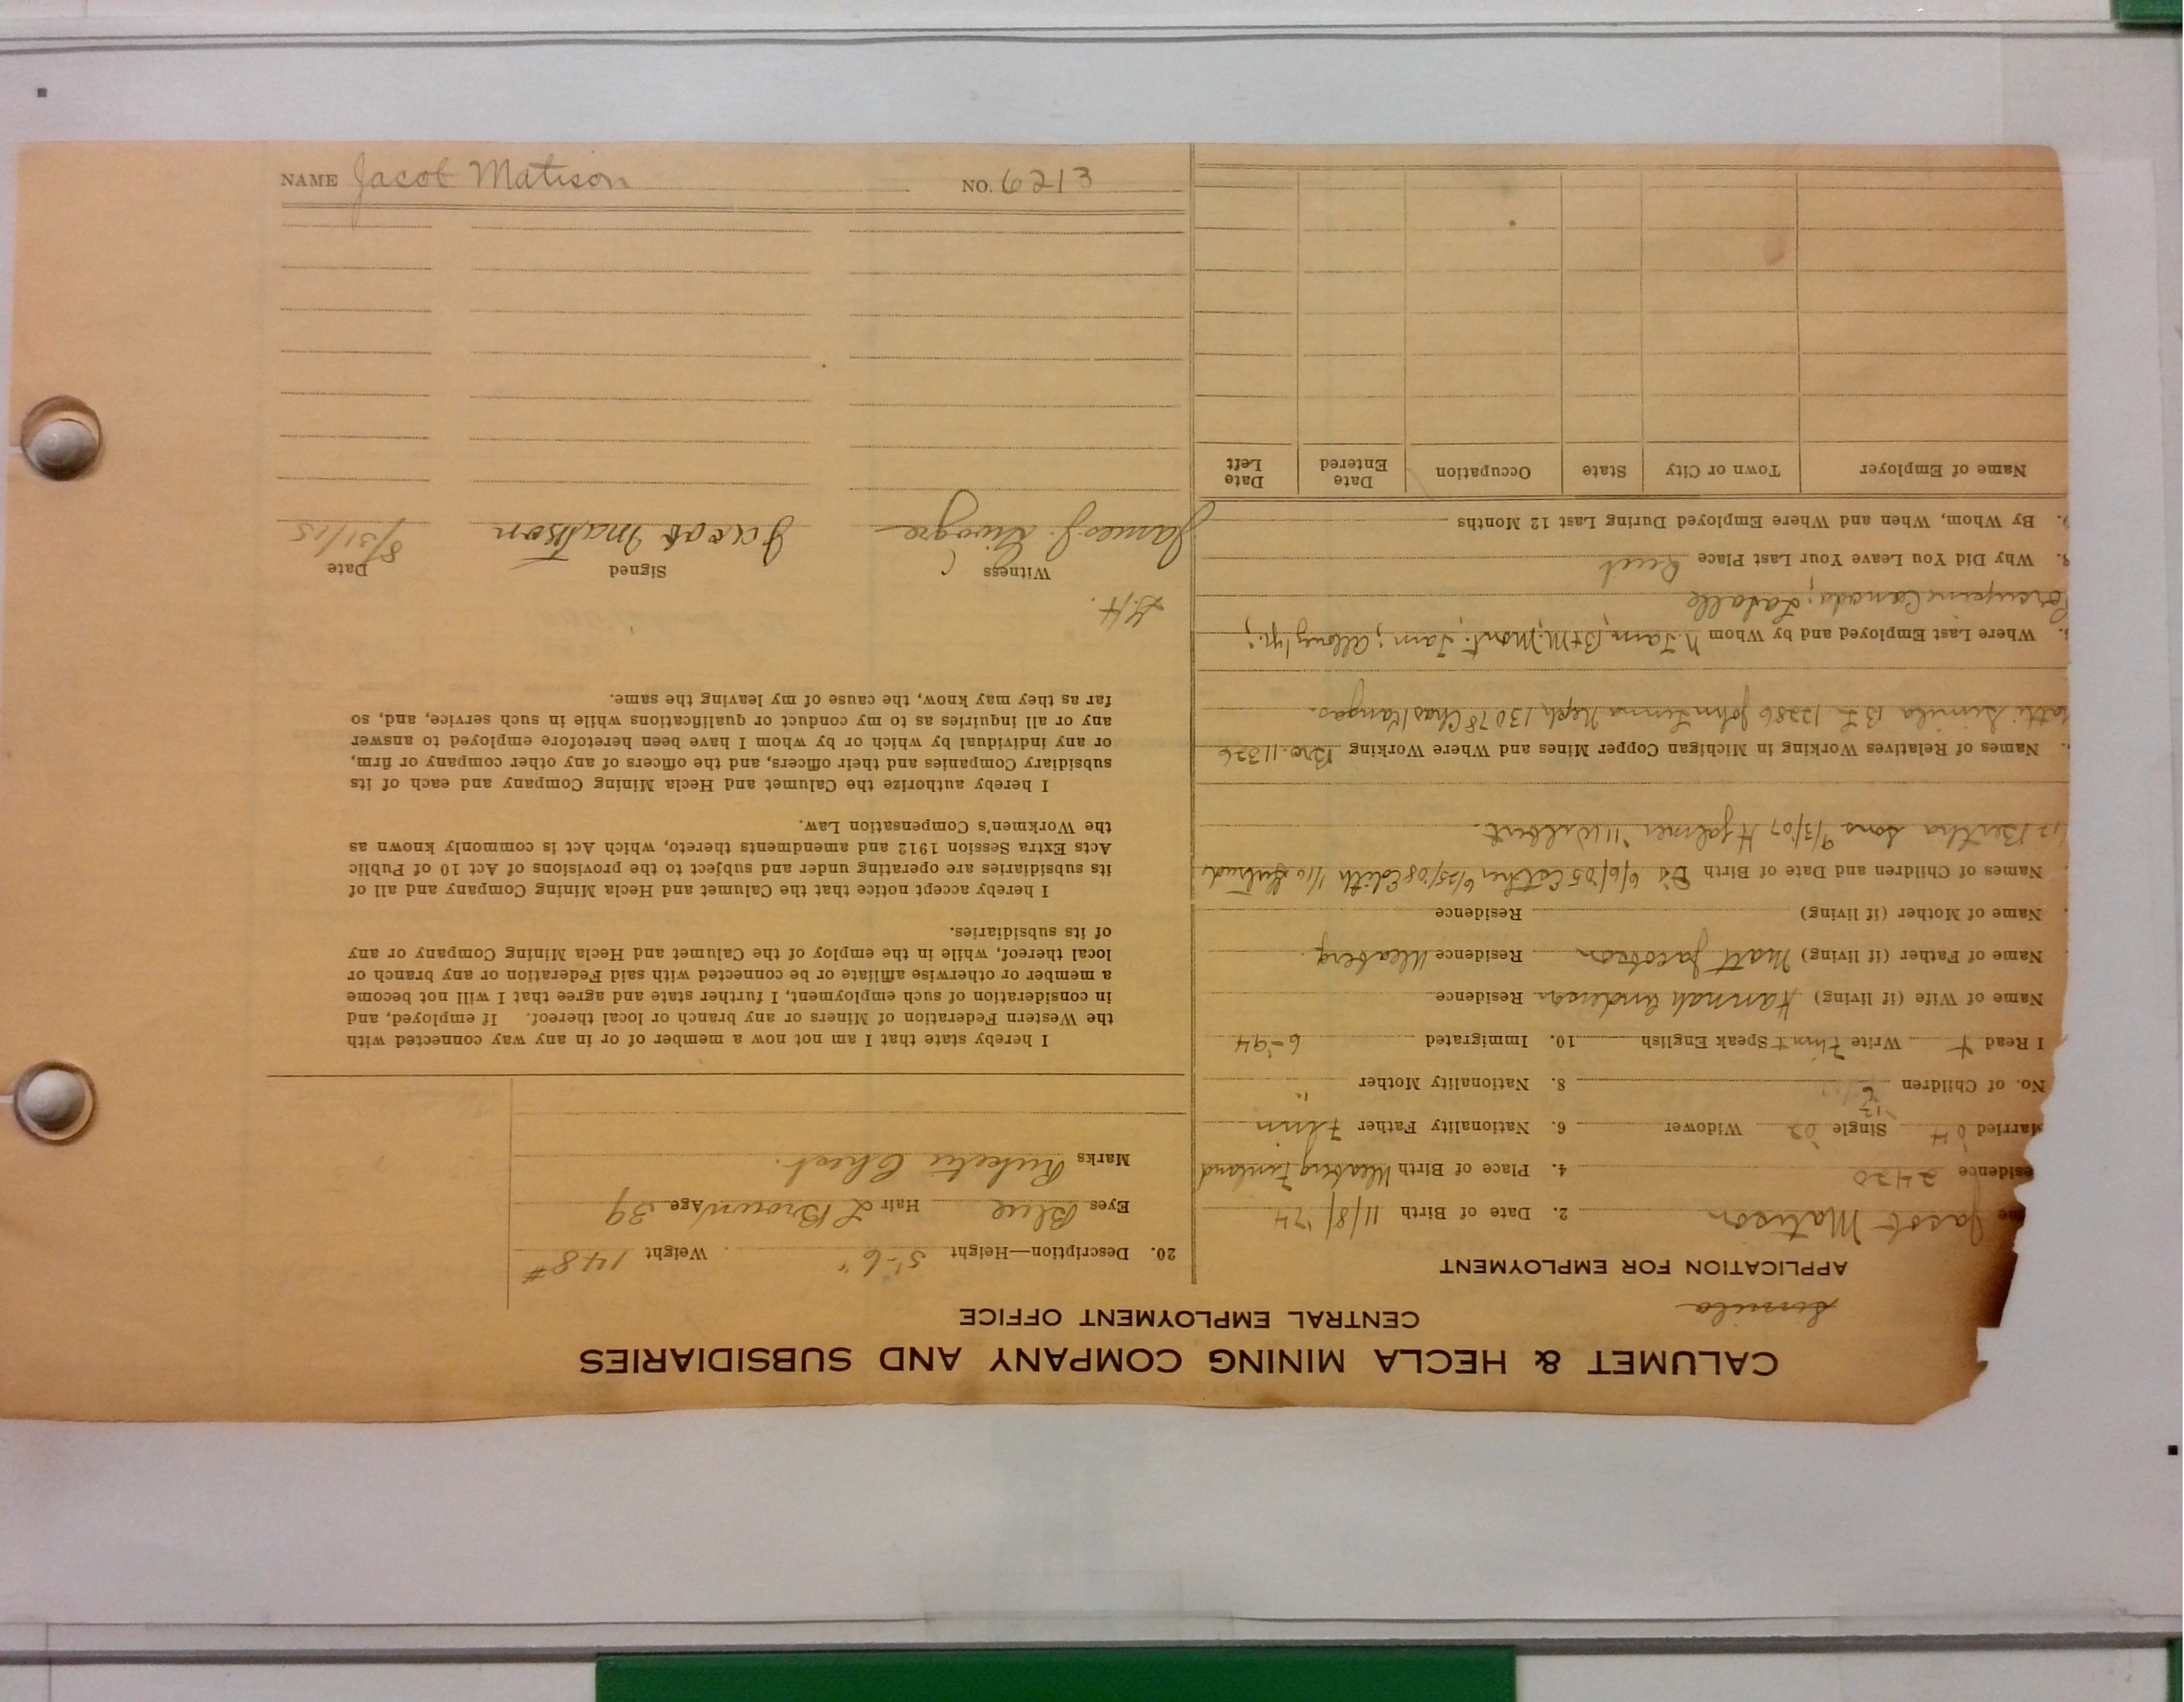 CALUMET & HECLA MINING COMPANY AND SUBSIDIARIES
CENTRAL EMPLOYMENT OFFICE
Simila
APPLICATION FOR EMPLOYMENT
me Jacob Matison 2. Date of Birth 11/8/'74
esidence 2420 4. Place of Birth Uleaborg Finland
Married '04 Single '02 Widower 6. Nationality Father Finn
No. of Children 6 8. Nationality Mother "
I Read + Write Finn + Speak English 10. Immigrated 6-'94
Name of Wife (if living) Hannah Anderson Residence
Name of Father (if living) Matt Jacobson Residence Uleaborg.
Name of Mother (if living) Residence
Names of Children and Date of Birth 6/6/'05 Esther 6/25/'08 Edith 1/10 Gertrude
'12 Bertha sons 9/3/07 Hjalmer '11 Wilbert.
Names of Relatives Working in Michigan Copper Mines and Where Working Bro. 11326
Matti Simila B.L. 12286 John Linna Neph. 13078 Chas Kangas.
Where Last Employed and by Whom N. Tam, B+M, Mont. Tam; 
Porcupine Canada; Lasalle
Why Did You Leave Your Last Place Quit
By Whom, When and Where Employed During Last 12 Months
Name of Employer Town or City State Occupation Date Entered Date Left
20. Description—Height 5'-6" Weight 148#
Eyes Blue Hair L Brown Age 39
Marks Chest.
I hereby state that I am not now a member of or in any way connected with
the Western Federation of Miners or any branch or local thereof. If employed, and
in consideration of such employment, I further state and agree that I will not become
a member or otherwise affiliate or be connected with said Federation or any branch or
local thereof, while in the employ of the Calumet and Hecla Mining Company or any
of its subsidiaries.
I hereby accept notice that the Calumet and Hecla Mining Company and all of
its subsidiaries are operating under and subject to the provisions of Act 10 of Public
Acts Extra Session 1912 and amendments thereto, which Act is commonly known as
the Workmen's Compensation Law.
I hereby authorize the Calumet and Hecla Mining Company and each of its
subsidiary Companies and their officers, and the officers of any other company or firm,
or any individual by which or by whom I have been heretofore employed to answer
any or all inquiries as to my conduct or qualifications while in such service, and, so
far as they may know, the cause of my leaving the same.
Witness Signed Date
James J. Jacob Mattson 8/31/15
NAME Jacob Matison NO. 6213